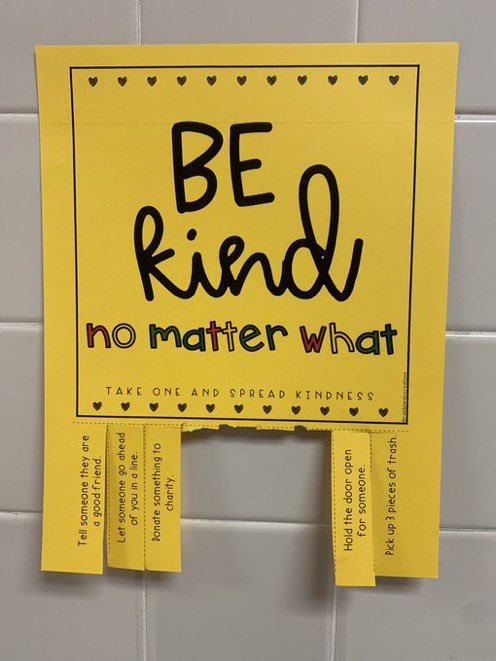 BE
kind
no matter what
TAKE ONE AND SPREAD KINDNESS
Tell someone they are
a good friend.
Let someone go ahead
of you in a line.
Donate something to
charity.
Hold the door open
for someone.
Pick up 3 pieces of trash.